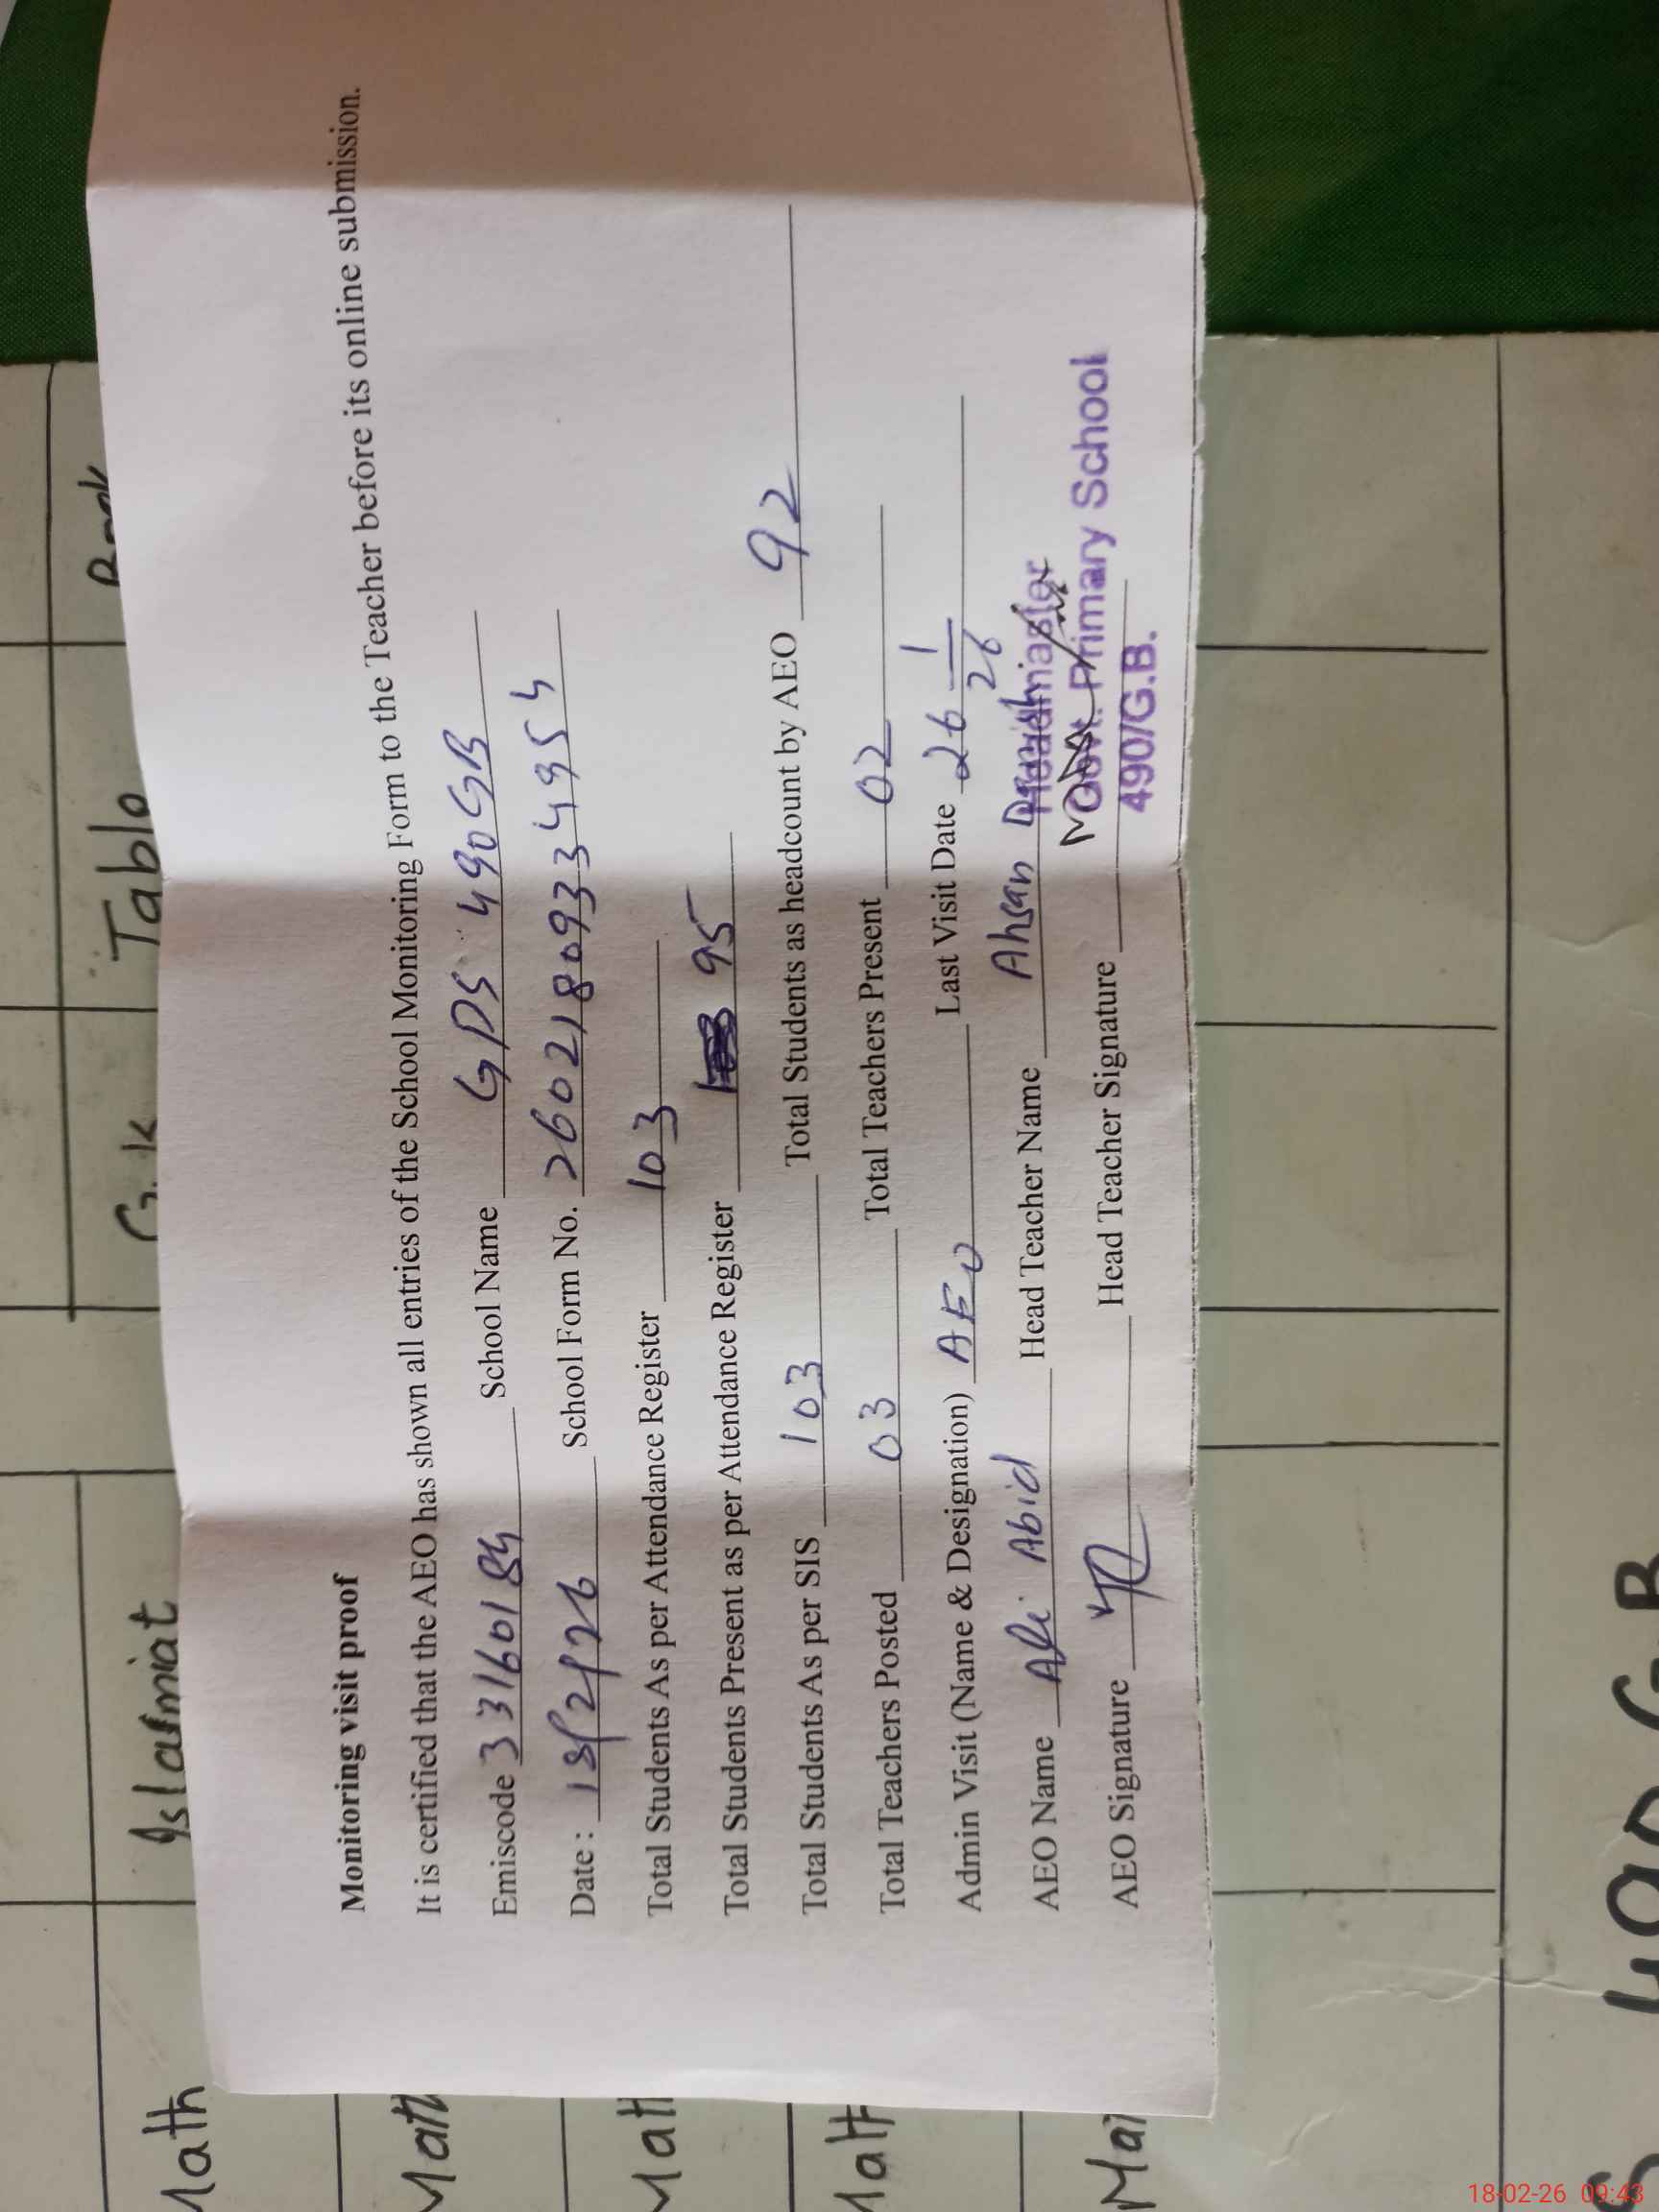 Monitoring visit proof
It is certified that the AEO has shown all entries of the School Monitoring Form to the Teacher before its online submission.
Emiscode 33160184 School Name GPS 490GB
Date : 18/2/26 School Form No. 26021809334954
Total Students As per Attendance Register 103
Total Students Present as per Attendance Register 95
Total Students As per SIS 103 Total Students as headcount by AEO 92
Total Teachers Posted 03 Total Teachers Present 02
Admin Visit (Name & Designation) AEO Last Visit Date 26 1/26
AEO Name Ali Abid Head Teacher Name Ahsan Danish
AEO Signature Head Teacher Signature
Headmaster
Govt. Primary School
490/G.B.
Math Islamiat G.K Table
Math
Math
Math
490 G.B
18-02-26 09:43